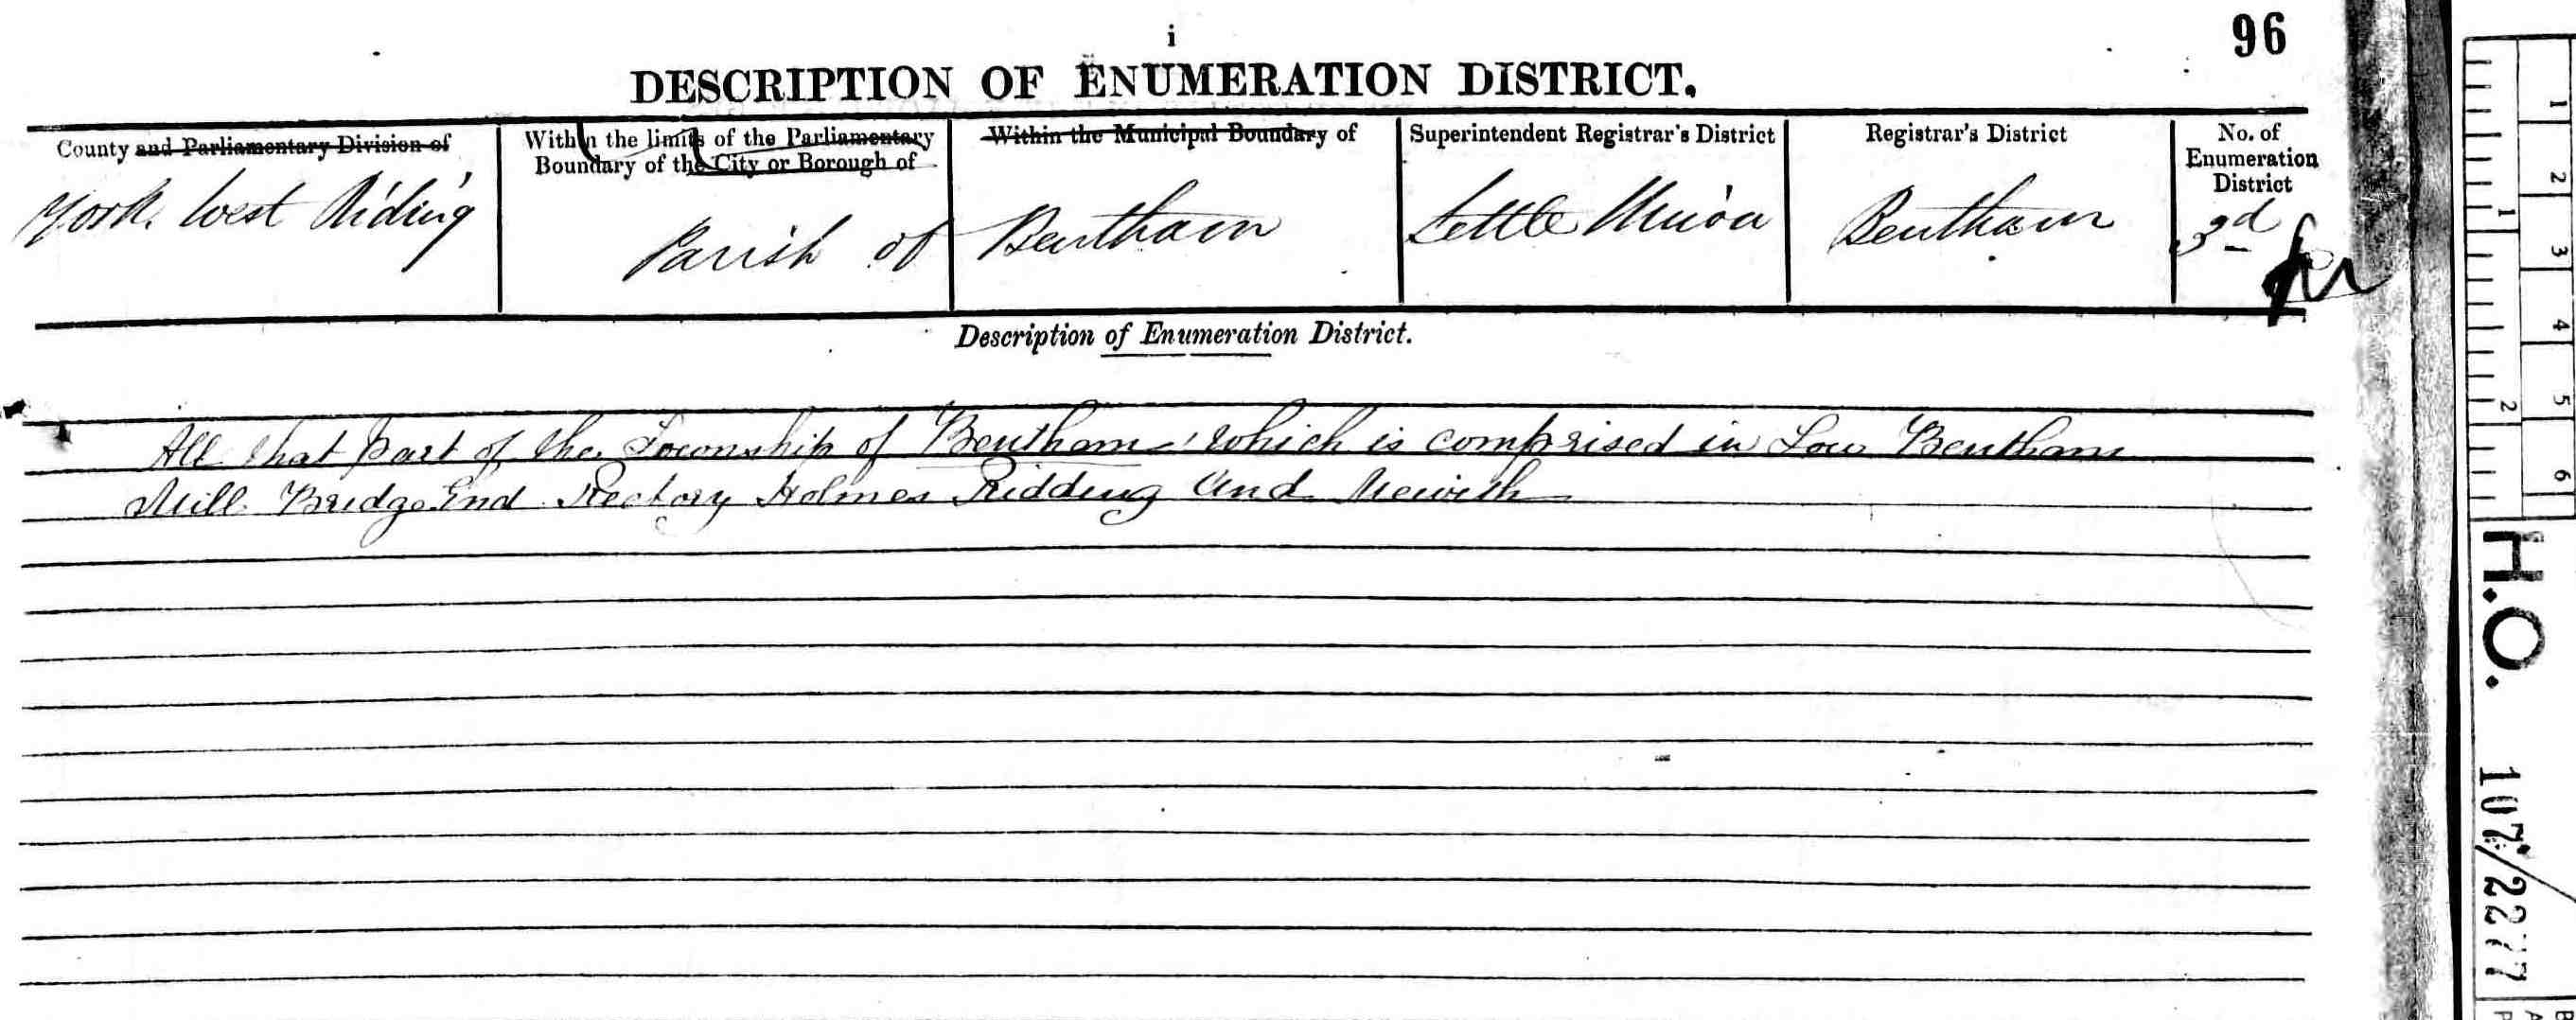 i
96
DESCRIPTION OF ENUMERATION DISTRICT.
County and Parliamentary Division of
York West Riding
Within the limits of the Parliamentary
Boundary of the City or Borough of
Parish of
Within the Municipal Boundary of
Bentham
Superintendent Registrar's District
Settle Union
Registrar's District
Bentham
No. of
Enumeration
District
3d
Description of Enumeration District.
All that part of the Township of Bentham which is comprised in Low Bentham
Mill Bridge End Rectory Holmes Ridding and Mewith
1
2
3
4
5
6
1
2
H.O. 107/2277